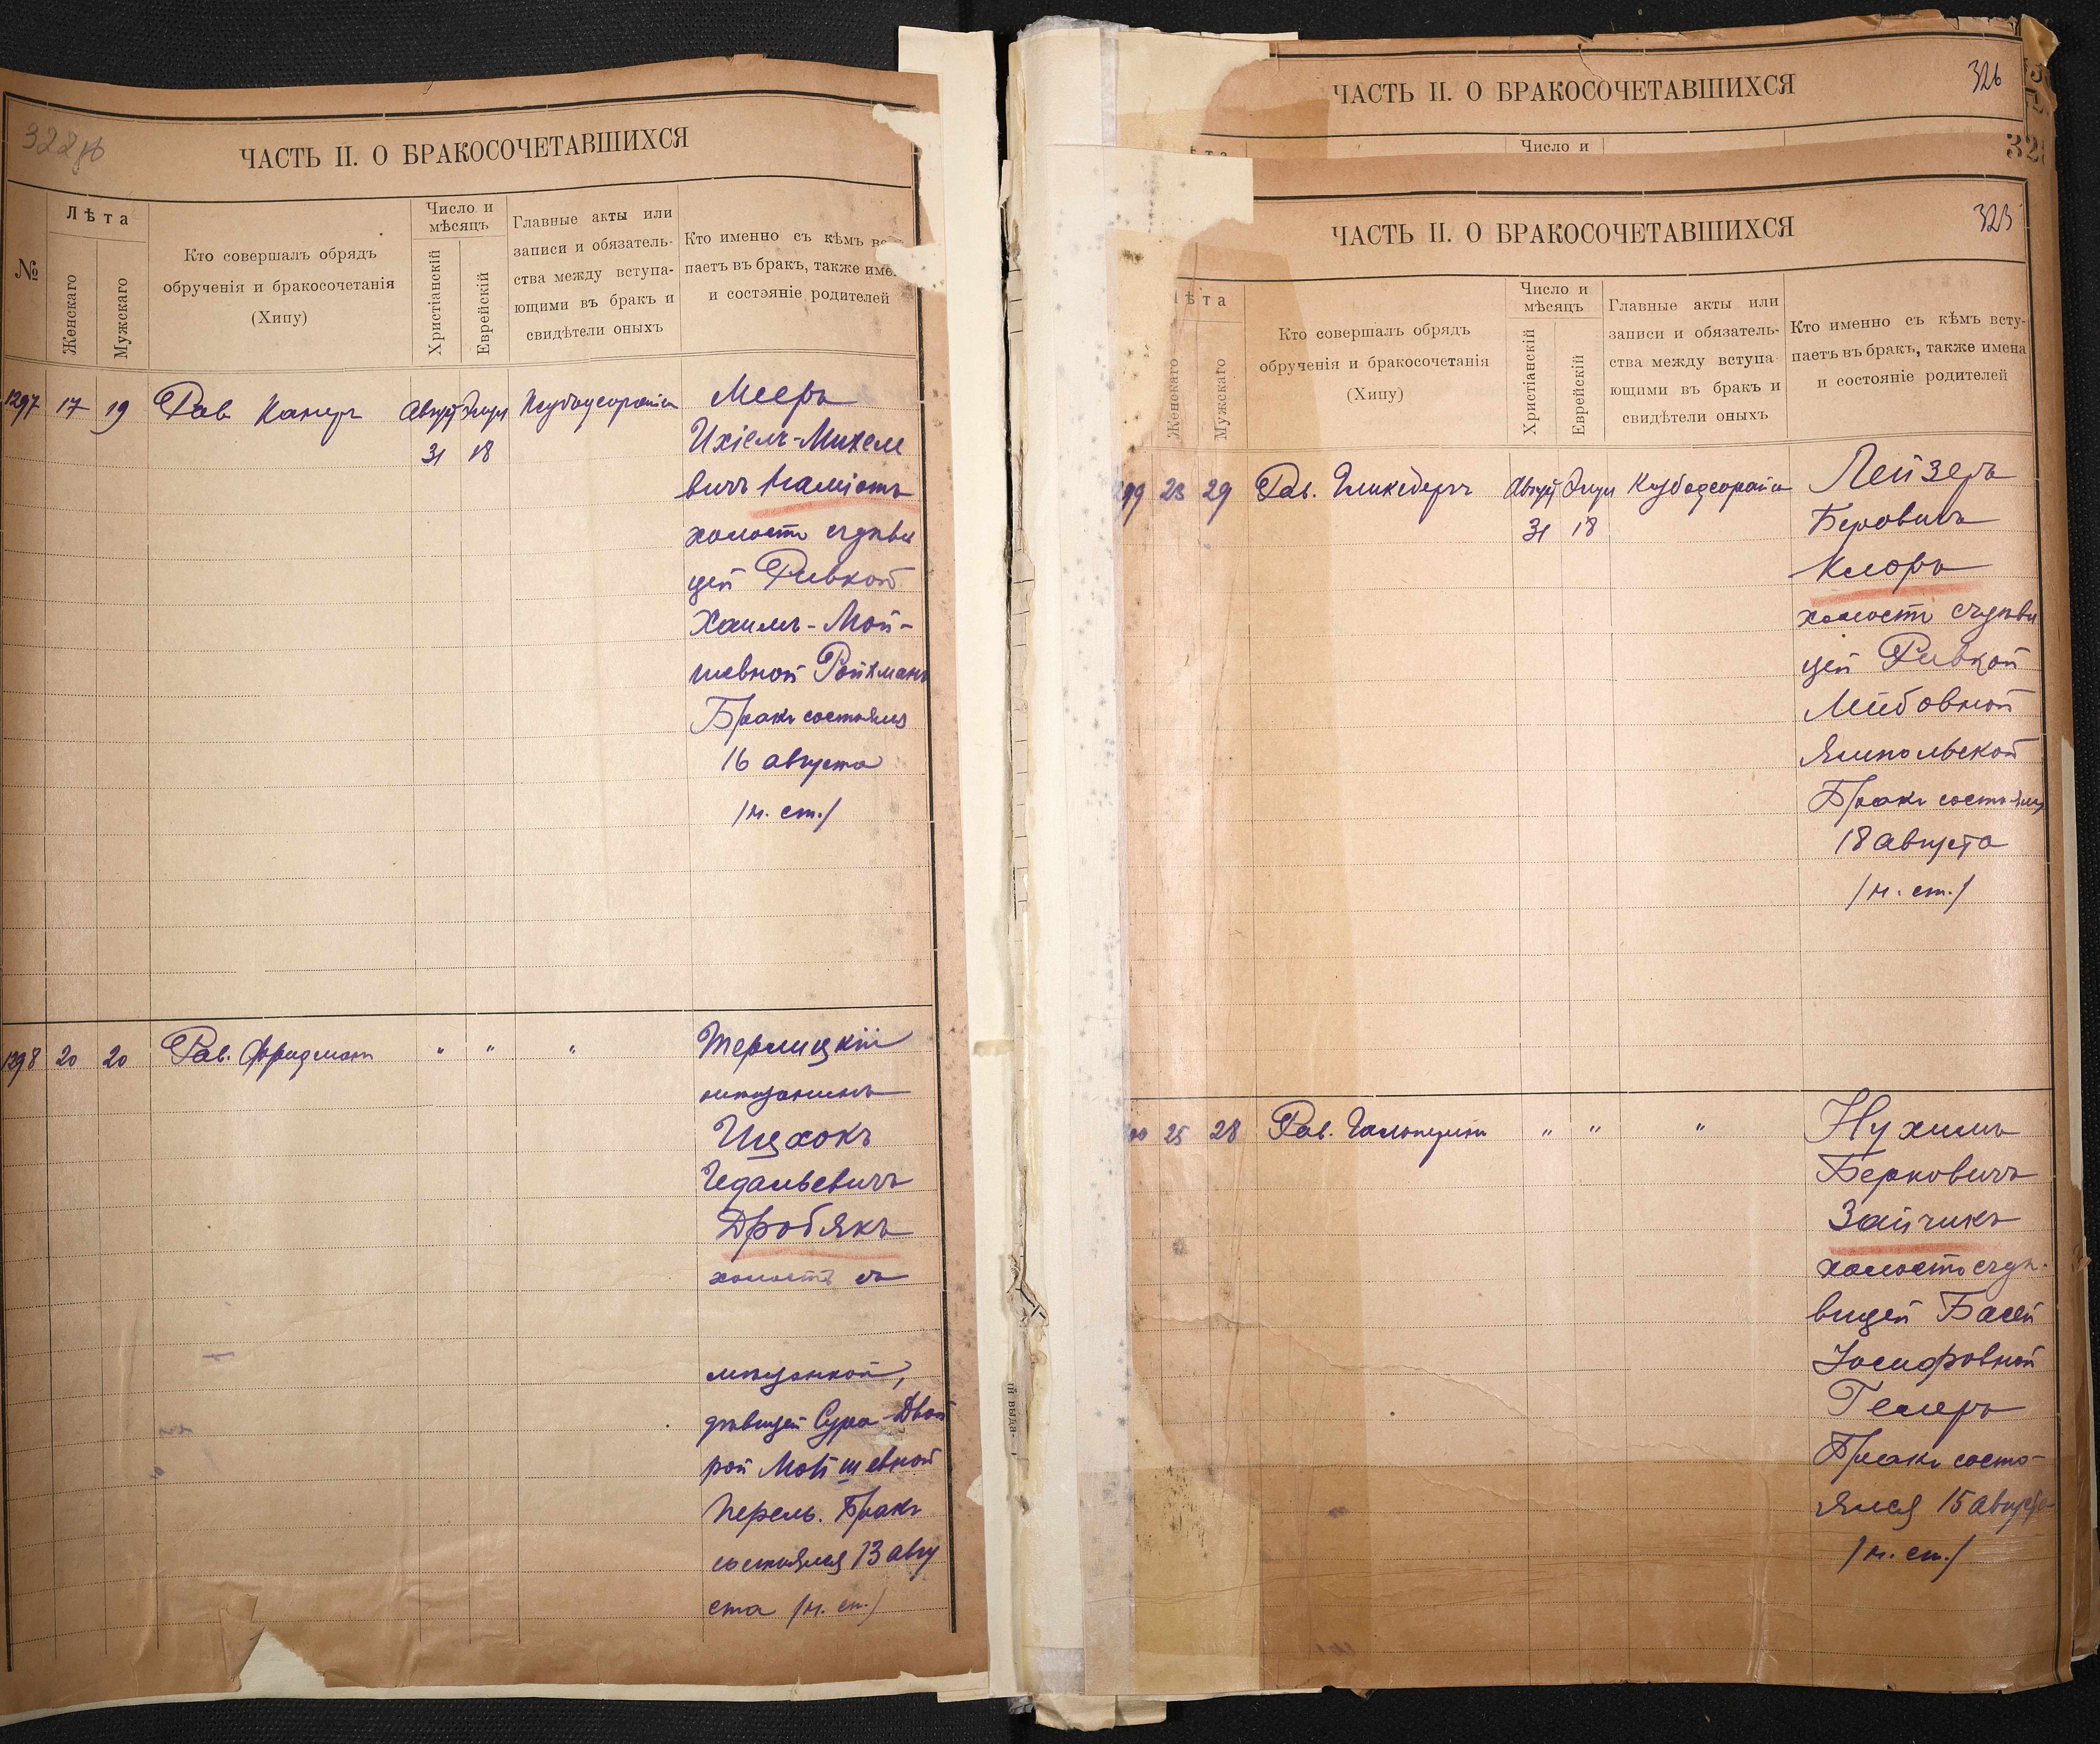 ЧАСТЬ II. О БРАКОСОЧЕТАВШИХСЯ
№
Лѣта
Женскаго
Мужскаго
Кто совершалъ обрядъ
обрученія и бракосочетанія
(Хипу)
Число и
мѣсяцъ
Христіанскій
Еврейскій
Главные акты или
записи и обязатель-
ства между вступа-
ющими въ бракъ и
свидѣтели оныхъ
Кто именно съ кѣмъ
паетъ въ бракъ, также
и состояніе родителей
1297 17 19 Рав
31 18
Мееръ
Ихіелъ-Михеле
вичъ
холостъ съ дѣви
цей Ривкой
Хаимъ-Мой-
шевной Ройхманъ
Бракъ состоялся
16 августа
/н. ст./
1298 20 20 Рав. Фридманъ " " "
Терлицкій
мѣщанинъ
Ицхокъ
Гедальевичъ
Дробякъ
холостъ съ
мѣщанкой,
дѣвицей Сура-Двой
рой Мойшевной
Перель. Бракъ
состоялся 13 авгу
ста /н. ст./
ЧАСТЬ II. О БРАКОСОЧЕТАВШИХСЯ
326
Число и
ЧАСТЬ II. О БРАКОСОЧЕТАВШИХСЯ
325
Женскаго
Мужскаго
Кто совершалъ обрядъ
обрученія и бракосочетанія
(Хипу)
Число и
мѣсяцъ
Христіанскій
Еврейскій
Главные акты или
записи и обязатель-
ства между вступа-
ющими въ бракъ и
свидѣтели оныхъ
Кто именно съ кѣмъ всту-
паетъ въ бракъ, также имена
и состояніе родителей
23 29 Рав. Август Элул
31 18
Лейзеръ
Беровичъ
Клоръ
холостъ съ дѣви
цей Ривкой
Лейбовной
Ямпольской
Бракъ состоялся
18 августа
/н. ст./
25 28 Рав. Гальперинъ " " "
Нухимъ
Берковичъ
Зайчикъ
холостъ съ дѣ-
вицей Басей
Іосифовной
Гелеръ
Бракъ состо-
ялся 15 августа
/н. ст./